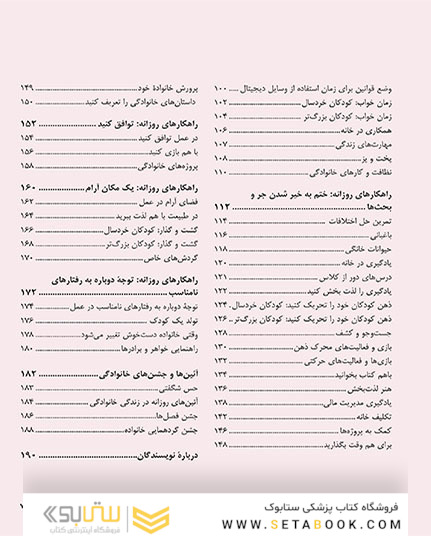 وضع قوانین برای زمان استفاده از وسایل دیجیتال ..... ۱۰۰
زمان خواب: کودکان خردسال ..... ۱۰۲
زمان خواب: کودکان بزرگ‌تر ..... ۱۰۴
همکاری در خانه ..... ۱۰۶
مهارت‌های زندگی ..... ۱۰۷
پخت و پز ..... ۱۰۸
نظافت و کارهای خانوادگی ..... ۱۱۰
راهکارهای روزانه: ختم به خیر شدن جر و
بحث‌ها ..... ۱۱۲
تمرین حل اختلافات ..... ۱۱۴
باغبانی ..... ۱۱۶
حیوانات خانگی ..... ۱۱۸
یادگیری در خانه ..... ۱۲۰
درس‌های دور از کلاس ..... ۱۲۱
یادگیری را لذت بخش کنید ..... ۱۲۲
ذهن کودکان خود را تحریک کنید: کودکان خردسال .. ۱۲۴
ذهن کودکان خود را تحریک کنید: کودکان بزرگ‌تر .. ۱۲۶
جست‌وجو و کشف ..... ۱۲۸
بازی و فعالیت‌های محرک ذهن ..... ۱۳۰
بازی‌ها و فعالیت‌های حرکتی ..... ۱۳۲
باهم کتاب بخوانید ..... ۱۳۴
هنر لذت‌بخش ..... ۱۳۶
یادگیری مدیریت مالی ..... ۱۳۸
تکلیف خانه ..... ۱۴۲
کمک به پروژه‌ها ..... ۱۴۶
برای هم وقت بگذارید ..... ۱۴۸
پرورش خانوادهٔ خود ..... ۱۴۹
داستان‌های خانوادگی را تعریف کنید ..... ۱۵۰
راهکارهای روزانه: توافق کنید ..... ۱۵۲
در عمل توافق کنید ..... ۱۵۴
با هم بازی کنید ..... ۱۵۶
پروژه‌های خانوادگی ..... ۱۵۸
راهکارهای روزانه: یک مکان آرام ..... ۱۶۰
فضای آرام در عمل ..... ۱۶۲
در طبیعت با هم لذت ببرید ..... ۱۶۴
گشت و گذار: کودکان خردسال ..... ۱۶۶
گشت و گذار: کودکان بزرگ‌تر ..... ۱۶۸
گردش‌های خاص ..... ۱۷۰
راهکارهای روزانه: توجهٔ دوباره به رفتارهای
نامناسب ..... ۱۷۲
توجهٔ دوباره به رفتارهای نامناسب در عمل ..... ۱۷۴
تولد یک کودک ..... ۱۷۶
وقتی خانواده دست‌خوش تغییر می‌شود ..... ۱۷۸
راهنمایی خواهر و برادرها ..... ۱۸۰
آئین‌ها و جشن‌های خانوادگی ..... ۱۸۲
حس شگفتی ..... ۱۸۳
آئین‌های روزانه در زندگی خانوادگی ..... ۱۸۴
جشن فصل‌ها ..... ۱۸۶
جشن گردهمایی خانواده ..... ۱۸۸
دربارهٔ نویسندگان ..... ۱۹۰
فروشگاه کتاب پزشکی ستابوک
WWW.SETABOOK.COM
ستابوک
فروشگاه اینترنتی کتاب